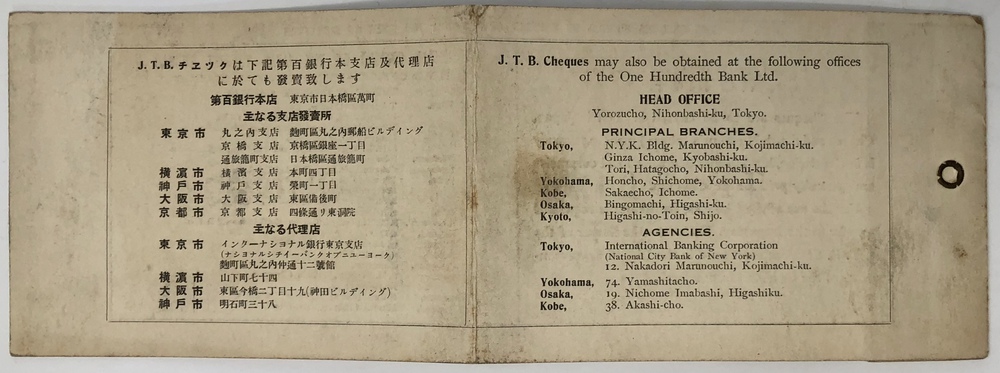 J. T. B. チヱツクは下記第百銀行本支店及代理店
に於ても發賣致します
第百銀行本店 東京市日本橋區萬町
主なる支店發賣所
東京市 丸之內支店 麴町區丸之內郵船ビルデイング
京橋支店 京橋區銀座一丁目
通旅籠町支店 日本橋區通旅籠町
橫濱市 橫濱支店 本町四丁目
神戶市 神戶支店 榮町一丁目
大阪市 大阪支店 東區備後町
京都市 京都支店 四條通リ東洞院
主なる代理店
東京市 インターナシヨナル銀行東京支店
(ナシヨナルシチイーバンクオブニユーヨーク)
麴町區丸之內仲通十二號館
橫濱市 山下町七十四
大阪市 東區今橋二丁目十九(神田ビルデイング)
神戶市 明石町三十八
J. T. B. Cheques may also be obtained at the following offices
of the One Hundredth Bank Ltd.
HEAD OFFICE
Yorozucho, Nihonbashi-ku, Tokyo.
PRINCIPAL BRANCHES.
Tokyo, N.Y.K. Bldg. Marunouchi, Kojimachi-ku.
Ginza Ichome, Kyobashi-ku.
Tori, Hatagocho, Nihonbashi-ku.
Yokohama, Honcho, Shichome, Yokohama.
Kobe, Sakaecho, Ichome.
Osaka, Bingomachi, Higashi-ku.
Kyoto, Higashi-no-Toin, Shijo.
AGENCIES.
Tokyo, International Banking Corporation
(National City Bank of New York)
12. Nakadori Marunouchi, Kojimachi-ku.
Yokohama, 74. Yamashitacho.
Osaka, 19. Nichome Imabashi, Higashiku.
Kobe, 38. Akashi-cho.